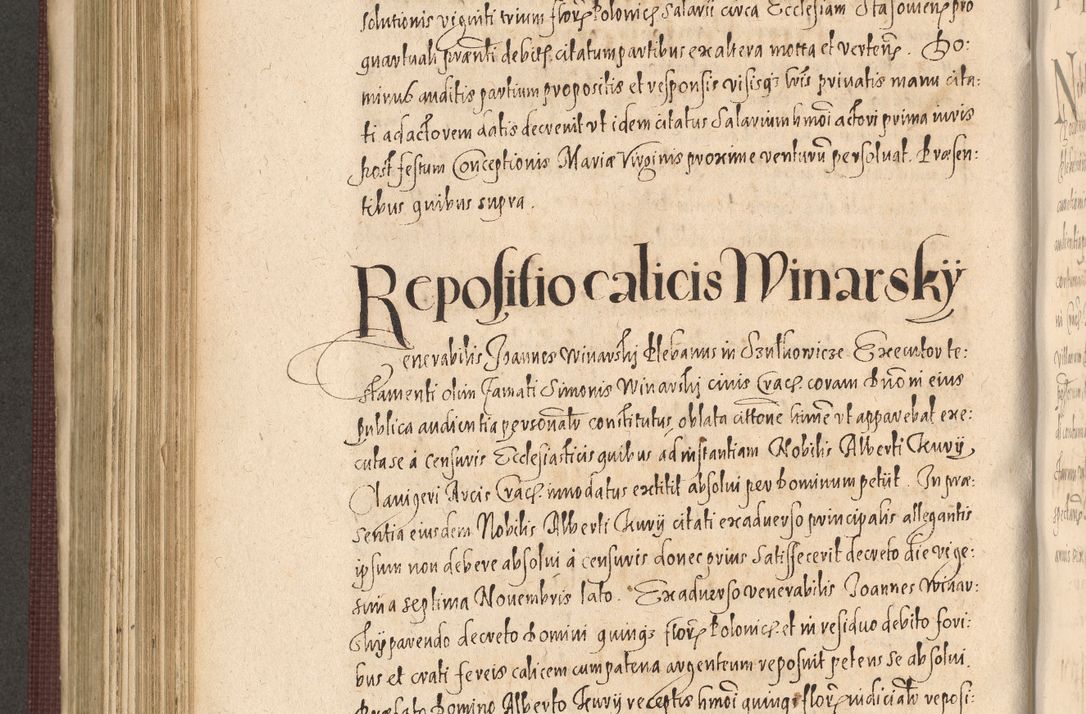 solutionis viginti trium flor. Polonic. Salarii circa Ecclesiam Stasovien. pro
quartuali praeteriti debit. citatum partibus ex altera motta et verten. Do:
minus auditis partium propositis et responsis visisq3 lris privatis manu cita:
ti ad actorem datis decrevit vt idem citatus Salarium hmoi actori prima iuris
post festum Conceptionis Mariæ Virginis proxime venturu persoluat. Præsen:
tibus quibus supra.
Repositio calicis Winarskÿ
Venerabilis Joannes Winarskj Plebanus in Szulkowicze Executor te:
stamenti olim Famati Simonis Winarskj civis Crac. coram Dno ni eius
publica audientia personalr constitutus, oblata cittone hmoi vt apparebat exe:
cuta se à censuris Ecclesiasticis quibus ad instantiam Nobilis Alberti Kurÿ,
Clavigeri Arcis Crac. innodatus extitit absolui per Dominum petiit. In præ:
sentia eiusdem Nobilis Alberti Kurÿ citati ex adverso principalis allegantis
ipsum non debere absolui à censuris donec prius Satisfecerit decreto die vige:
sima septima Novembris lato. Ex adverso venerabilis Joannes Winar:
skÿ parendo decreto Domini quinq3 flor. Polonic. et in residuo debito fori:
bus et crati fereis calicem cum patena argenteum reposuit petens se absolui.
Prælato Domino Alberto Kurÿ receptis hmoi quinq3 flor. iudicialr reposi: